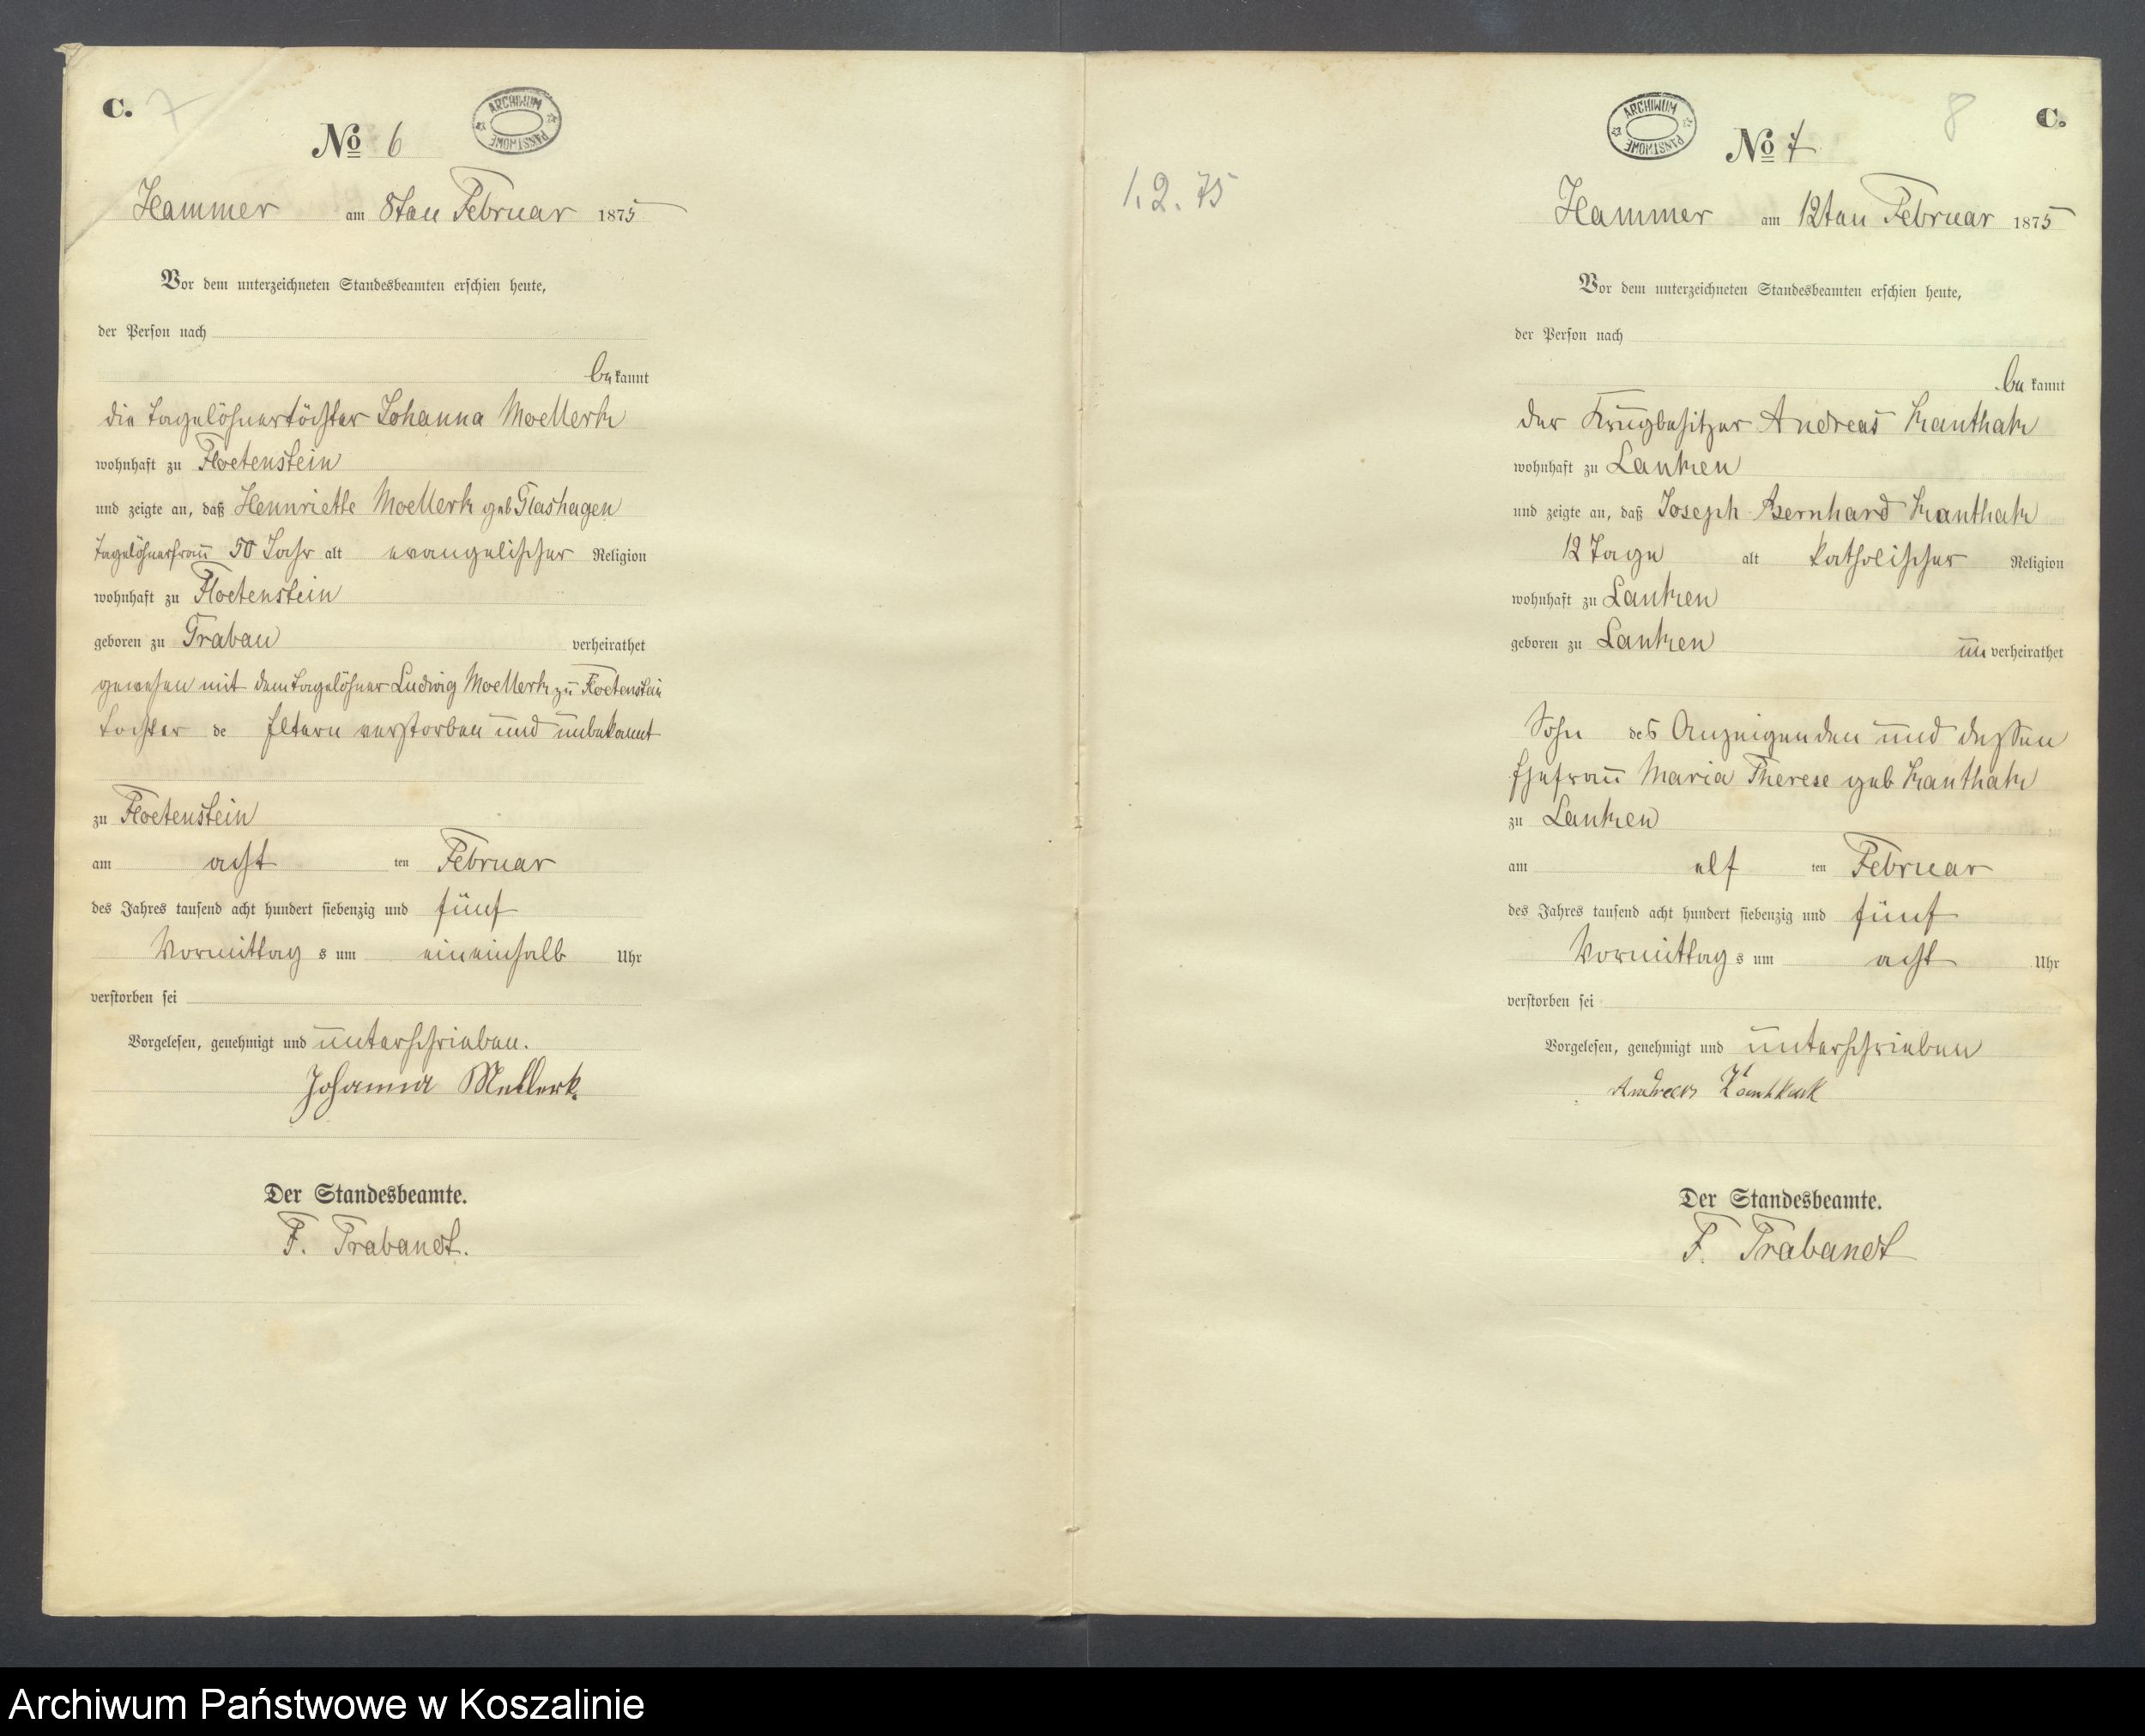 C. 7
ARCHIWUM PAŃSTWOWE
No 6
Hammer am 8ten Februar 1875
Vor dem unterzeichneten Standesbeamten erschien heute,
der Person nach
bekannt
die Tagelöhnertöchter Johanna Moellerk
wohnhaft zu Floetenstein
und zeigte an, daß Hennriette Moellerk geb Glashagen
Tagelöhnerfrau 50 Jahr alt evangelischer Religion
wohnhaft zu Floetenstein
geboren zu Trabau verheirathet
gewesen mit dem Tagelöhner Ludwig Moellerk zu Floetenstein
Tochter de Eltern verstorben und unbekannt
zu Floetenstein
am acht ten Februar
des Jahres tausend acht hundert siebenzig und fünf
Vormittag s um eineinhalb Uhr
verstorben sei
Vorgelesen, genehmigt und unterschrieben.
Johanna Mellerk.
Der Standesbeamte.
F. Trabandt.
1.2.75
8 C.
ARCHIWUM PAŃSTWOWE
No 7
Hammer am 12ten Februar 1875
Vor dem unterzeichneten Standesbeamten erschien heute,
der Person nach
be kannt
der Krugbesitzer Andreas Kanthak
wohnhaft zu Lanken
und zeigte an, daß Joseph Bernhard Kanthak
12 Tage alt katholischer Religion
wohnhaft zu Lanken
geboren zu Lanken un verheirathet
Sohn des Anzeigenden und dessen
Ehefrau Maria Therese geb Kanthak
zu Lanken
am elf ten Februar
des Jahres tausend acht hundert siebenzig und fünf
Vormittag s um acht Uhr
verstorben sei
Vorgelesen, genehmigt und unterschrieben
Andreas Kanthak
Der Standesbeamte.
F. Trabandt
Archiwum Państwowe w Koszalinie